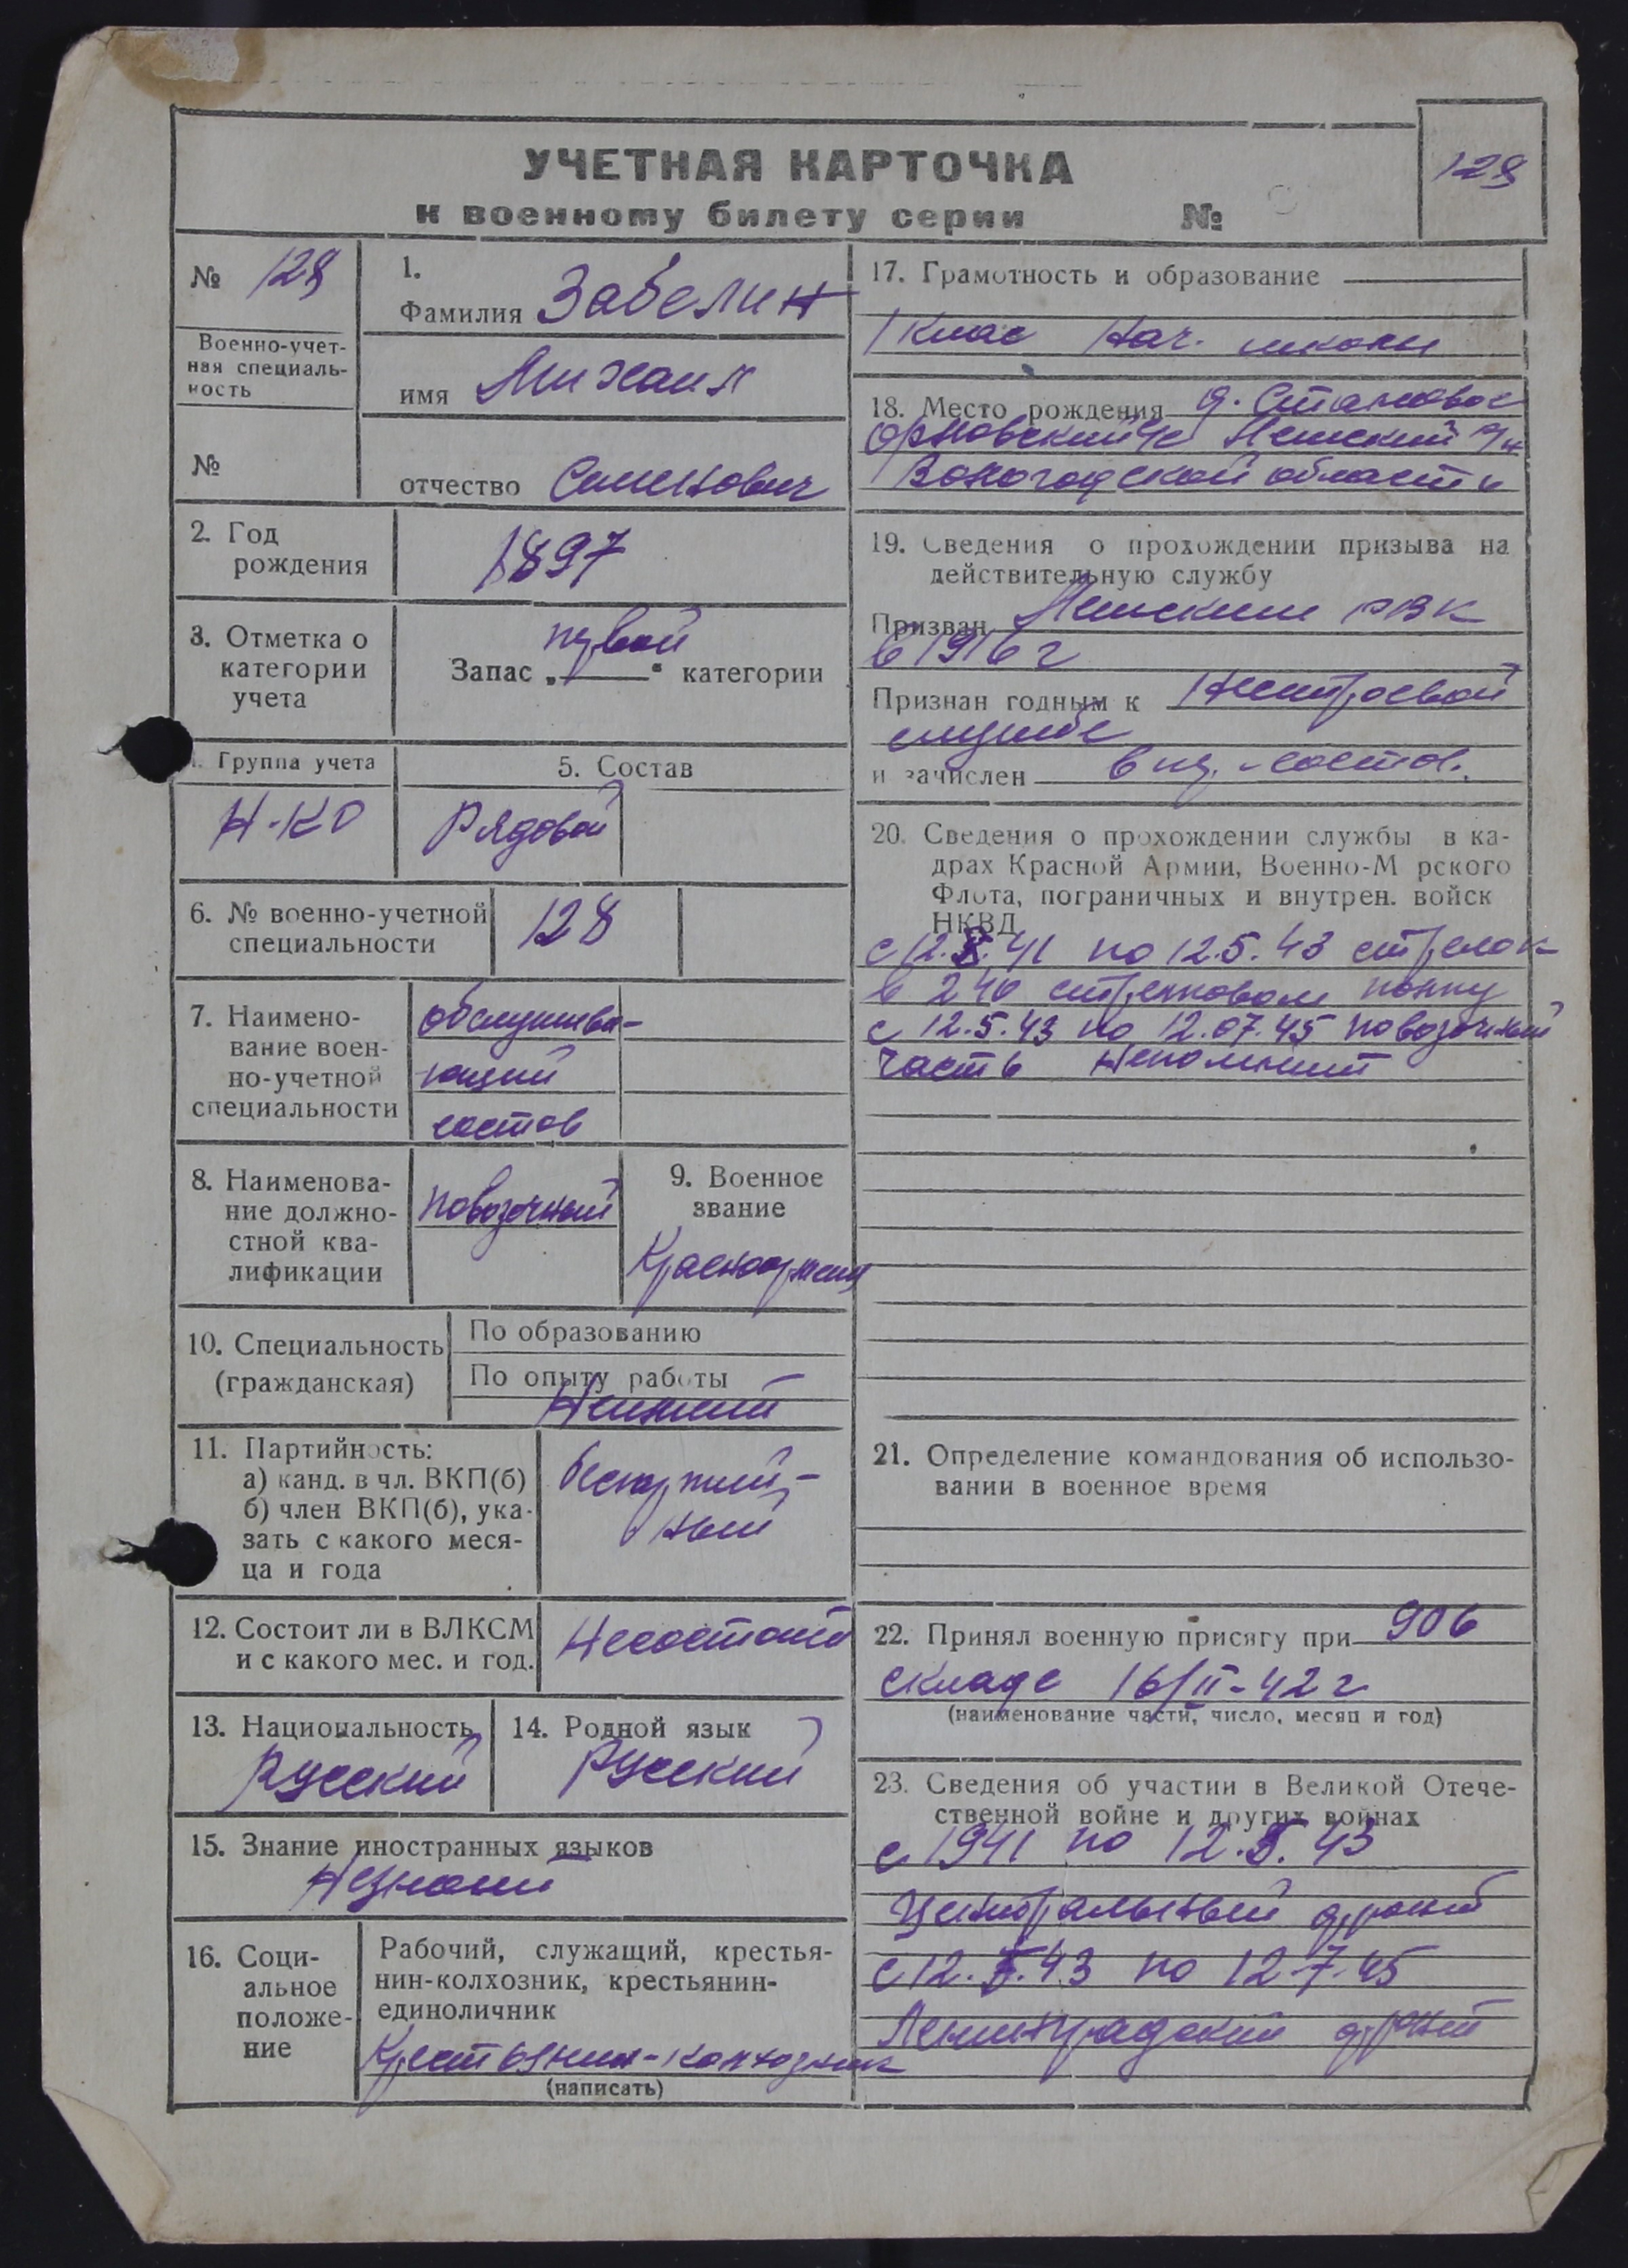 УЧЕТНАЯ КАРТОЧКА
к военному билету серии №
128
№ 128
Военно-учет-
ная специаль-
ность
№
1.
Фамилия Забелин
имя Михаил
отчество Семенович
2. Год
рождения
1897
3. Отметка о
категории
учета
первой
Запас „ “ категории
Группа учета
Н-КО
5. Состав
Рядовой
6. № военно-учетной
специальности
128
7. Наимено-
вание воен-
но-учетной
специальности
обслужива-
ющий
состав
8. Наименова-
ние должно-
стной ква-
лификации
повозочный
9. Военное
звание
Красноармеец
10. Специальность
(гражданская)
По образованию
По опыту работы
Неимеит
11. Партийность:
а) канд. в чл. ВКП(б)
б) член ВКП(б), ука-
зать с какого меся-
ца и года
беспартий-
ный
12. Состоит ли в ВЛКСМ
и с какого мес. и год.
Несостоит
13. Национальность
Русский
14. Родной язык
Русский
15. Знание иностранных языков
Незнаит
16. Соци-
альное
положе-
ние
Рабочий, служащий, крестья-
нин-колхозник, крестьянин-
единоличник
Крестьянин-колхозник
(написать)
17. Грамотность и образование
1 клас нач. школы
18. Место рождения д. Становое
с/с р/н
Вологодской области
19. Сведения о прохождении призыва на
действительную службу
Призван РВК
в 1916 г
Признан годным к нестроевой
службе
и зачислен в ряд. состав.
20. Сведения о прохождении службы в ка-
драх Красной Армии, Военно-М рского
Флота, пограничных и внутрен. войск
НКВД
с 12. .41 по 12.5.43 стрелок
в 240 стрелковом полку
с 12.5.43 по 12.07.45 повозочный
часть непомнит
21. Определение командования об использо-
вании в военное время
22. Принял военную присягу при 906
складе 16/II-42 г
(наименование части, число, месяц и год)
23. Сведения об участии в Великой Отече-
ственной войне и других войнах
с 1941 по 12.5.43
Центральный фронт
с 12.5.43 по 12.7.45
Ленинградский фронт